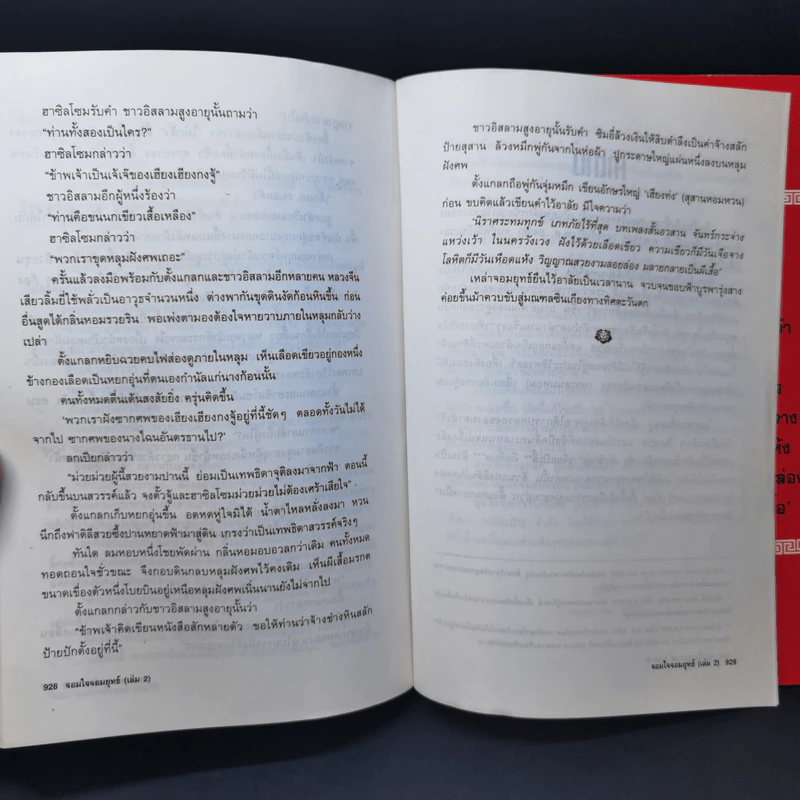 ฮาซิลโซมรับคำ ชาวอิสลามสูงอายุนั้นถามว่า
“ท่านทั้งสองเป็นใคร?”
ฮาซิลโซมกล่าวว่า
“ข้าพเจ้าเป็นเจ้เจ้ของเฮียงเฮียงกงจู้”
ชาวอิสลามอีกผู้หนึ่งร้องว่า
“ท่านคือขนนกเขียวเสื้อเหลือง”
ฮาซิลโซมกล่าวว่า
“พวกเราขุดหลุมฝังศพเถอะ”
ครั้นแล้วลงมือพร้อมกับตั้งแกลกและชาวอิสลามอีกหลายคน หลวงจีน
เสียวลิ้มยี่ใช้พลั่วเป็นอาวุธจำนวนหนึ่ง ต่างพากันขุดดินงัดก้อนหินขึ้น ก่อน
อื่นสูดได้กลิ่นหอมรวยริน พอเพ่งตามองต้องใจหายวาบภายในหลุมกลับว่าง
เปล่า
ตั้งแกลกหยิบฉวยคบไฟส่องดูภายในหลุม เห็นเลือดเขียวอยู่กองหนึ่ง
ข้างกองเลือดเป็นหยกอุ่นที่ตนเองกำนัลแก่นางก่อนนั้น
คนทั้งหมดตื่นเต้นสงสัยยิ่ง ครุ่นคิดขึ้น
‘พวกเราฝังซากศพของเฮียงเฮียงกงจู้อยู่ที่นี้ชัดๆ ตลอดทั้งวันไม่ได้
จากไป ซากศพของนางไฉนอันตรธานไป?’
ลกเปียกล่าวว่า
“ม่วยม่วยผู้นี้สวยงามปานนี้ ย่อมเป็นเทพธิดาจุติลงมาจากฟ้า ตอนนี้
กลับขึ้นบนสวรรค์แล้ว จงตั้วจู้และฮาซิลโซมม่วยม่วยไม่ต้องเศร้าเสียใจ”
ตั้งแกลกเก็บหยกอุ่นขึ้น อดหดหู่ใจมิได้ น้ำตาไหลหลั่งลงมา หวน
นึกถึงฟาติลีสวยซึ้งปานหยาดฟ้ามาสู่ดิน เกรงว่าเป็นเทพธิดาสวรรค์จริงๆ
ทันใด ลมหอบหนึ่งโชยพัดผ่าน กลิ่นหอมอบอวลกว่าเดิม คนทั้งหมด
ทอดถอนใจชั่วขณะ จึงกอบดินกลบหลุมฝังศพไว้คงเดิม เห็นผีเสื้อมรกต
ขนาดเขื่องตัวหนึ่งโบยบินอยู่เหนือหลุมฝังศพเนิ่นนานยังไม่จากไป
ตั้งแกลกกล่าวกับชาวอิสลามสูงอายุนั้นว่า
“ข้าพเจ้าคิดเขียนหนังสือสักหลายตัว ขอให้ท่านว่าจ้างช่างหินสลัก
ป้ายปักตั้งอยู่ที่นี้”
928 จอมใจจอมยุทธ์ (เล่ม 2)
ชาวอิสลามสูงอายุนั้นรับคำ ซิมฮี่ล้วงเงินให้สิบตำลึงเป็นค่าจ้างสลัก
ป้ายสุสาน ล้วงหมึกพู่กันจากในห่อผ้า ปูกระดาษใหญ่แผ่นหนึ่งลงบนหลุม
ฝังศพ
ตั้งแกลกถือพู่กันจุ่มหมึก เขียนอักษรใหญ่ ‘เฮียงท่ง’ (สุสานหอมหวน)
ก่อน ขบคิดแล้วเขียนคำไว้อาลัย มีใจความว่า
“นิราศระทมทุกข์ เภทภัยไร้ที่สุด บทเพลงสิ้นอวสาน จันทร์กระจ่าง
แหว่งเว้า ในนครวังเวง ฝังไว้ด้วยเลือดเขียว ความเขียวก็มีวันเจือจาง
โลหิตก็มีวันเหือดแห้ง วิญญาณสวยงามลอยล่อง มลายกลายเป็นผีเสื้อ”
เหล่าจอมยุทธ์ยืนไว้อาลัยเป็นเวลานาน จวบจนขอบฟ้าบูรพารุ่งสาง
ค่อยขึ้นม้าควบขับสู่มณฑลซินเกียงทางทิศตะวันตก
จอมใจจอมยุทธ์ (เล่ม 2) 929